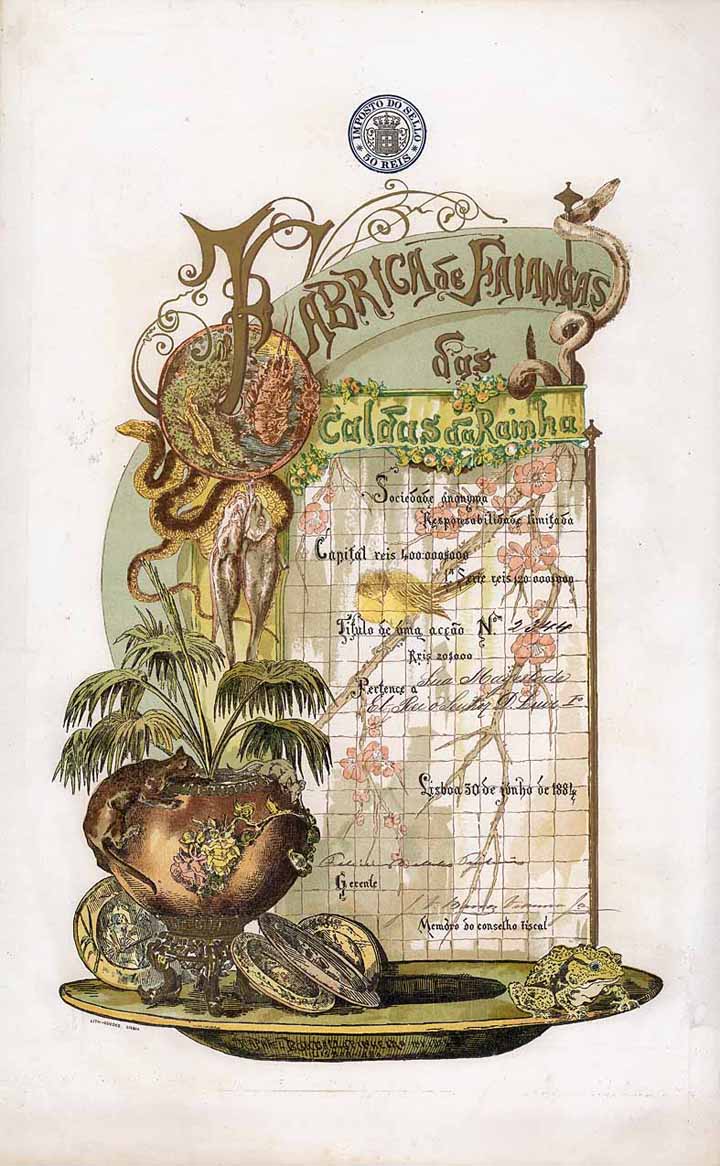 IMPOSTO DO SELLO
50 REIS
FABRICA de FAIANÇAS
das
Caldas da Rainha
Sociedade anonyma
Responsabilidade limitada
Capital reis 400:000$000
1ª Serie reis 120:000$000
Titulo de uma acção Nº
Reis 20$000
Pertence a Sua Magestade
El Rei o Senhor D. Luis 1º
Lisboa 30 de junho de 1884
Gerente
Membro do conselho fiscal
LITH. GUEDES, LISBOA